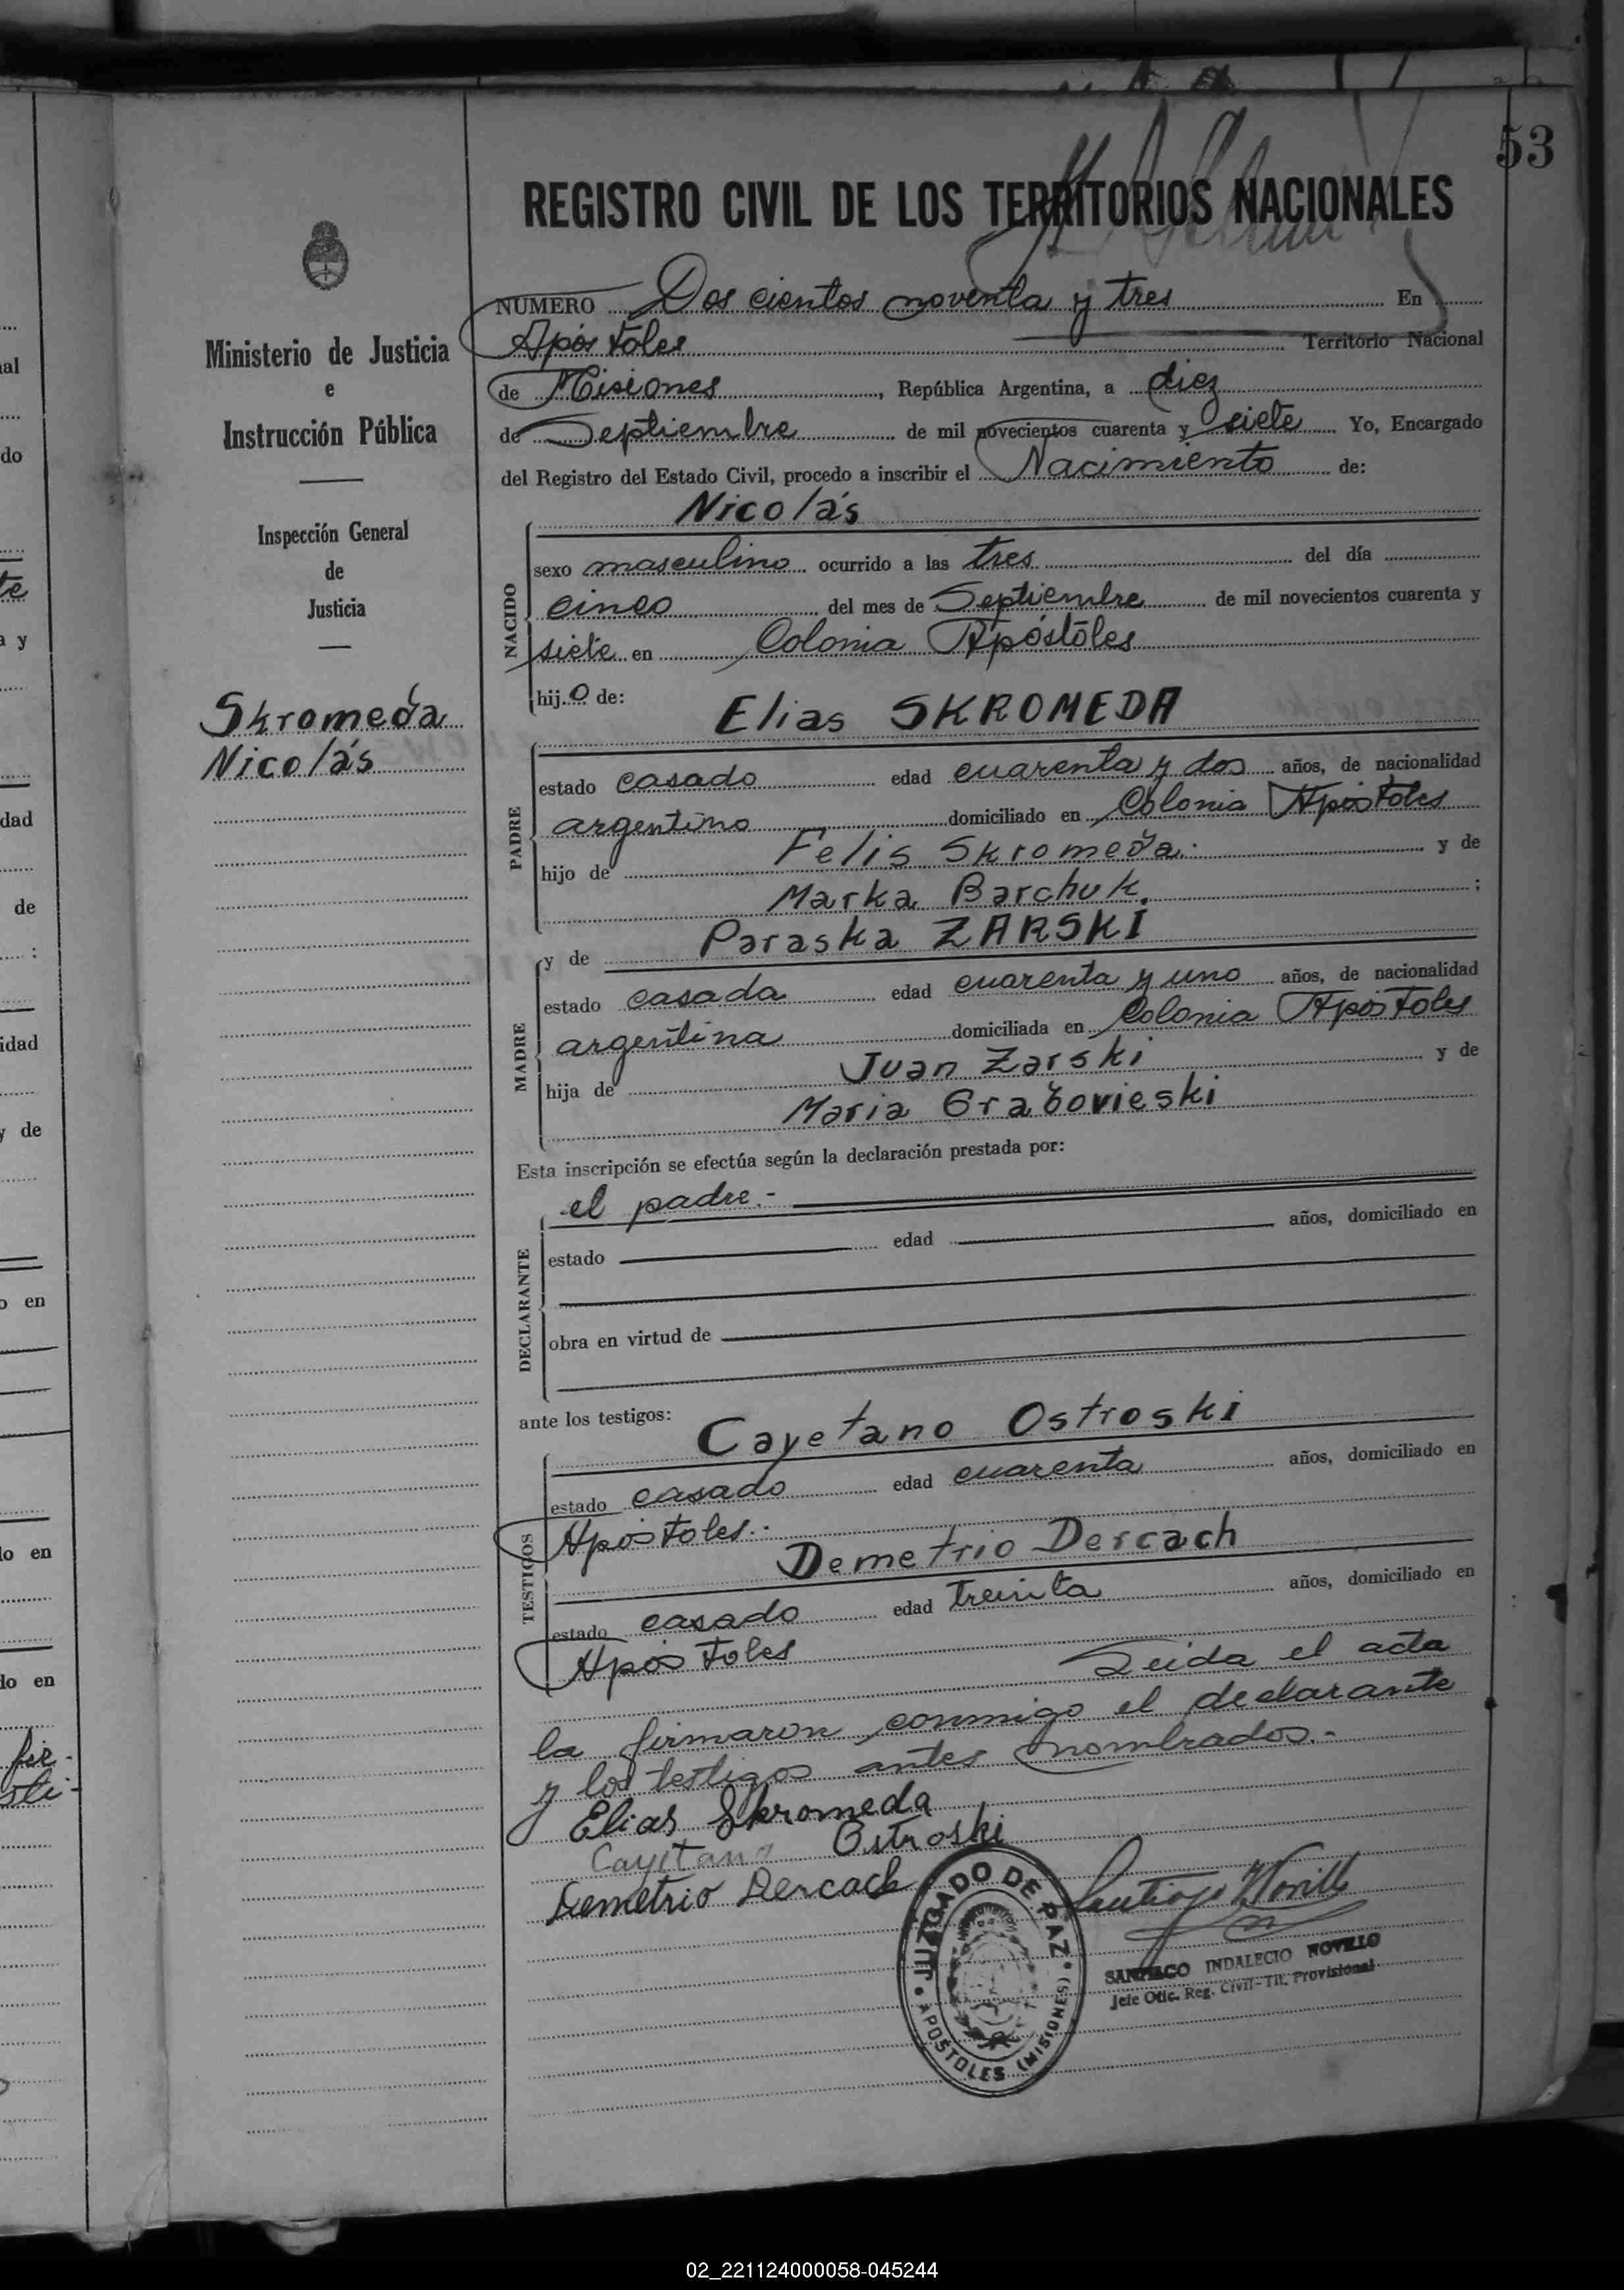 53
REGISTRO CIVIL DE LOS TERRITORIOS NACIONALES
Ministerio de Justicia
e
Instrucción Pública
Inspección General
de
Justicia
Skromeda
Nicolás
NUMERO Dos cientos noventa y tres En
Apóstoles Territorio Nacional
de Misiones, República Argentina, a diez
de Septiembre de mil novecientos cuarenta y siete Yo, Encargado
del Registro del Estado Civil, procedo a inscribir el Nacimiento de:
NACIDO
Nicolás
sexo masculino ocurrido a las tres del día
cinco del mes de Septiembre de mil novecientos cuarenta y
siete en Colonia Apóstoles
hij.o de:
PADRE
Elias SKROMEDA
estado casado edad cuarenta y dos años, de nacionalidad
argentino domiciliado en Colonia Apóstoles
hijo de Felis Skromeda.- y de
Marka Barchuk. ;
MADRE
y de Paraska ZARSKI
estado casada edad cuarenta y uno años, de nacionalidad
argentina domiciliada en Colonia Apóstoles
hija de Juan Zarski y de
Maria Grabovieski
Esta inscripción se efectúa según la declaración prestada por:
DECLARANTE
el padre.-
estado edad años, domiciliado en
obra en virtud de
ante los testigos:
TESTIGOS
Cayetano Ostroski
estado casado edad cuarenta años, domiciliado en
Apóstoles.-
Demetrio Dercach
estado casado edad treinta años, domiciliado en
Apóstoles Leida el acta
la firmaron conmigo el declarante
y los testigos antes nombrados.-
Elias Skromeda
Cayetano Ostroski
Demetrio Dercach
Santiago Novillo
JUZGADO DE PAZ
APOSTOLES (MISIONES)
SANTIAGO INDALECIO NOVILLO
Jefe Ofic. Reg. Civil-Tit. Provisional
al
do
te
a y
dad
de
:
idad
y de
o en
lo en
do en
02_221124000058-045244